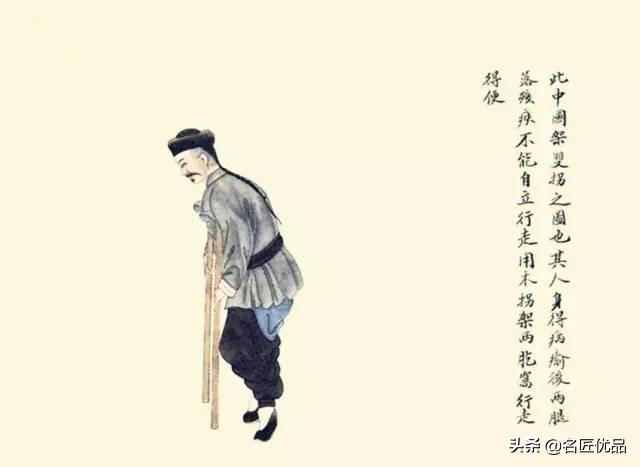 此中國架雙拐之圖也其人身得病瘉後兩腿
落殘疾不能自立行走用木拐架兩肐窩行走
得便
头条 @名匠优品